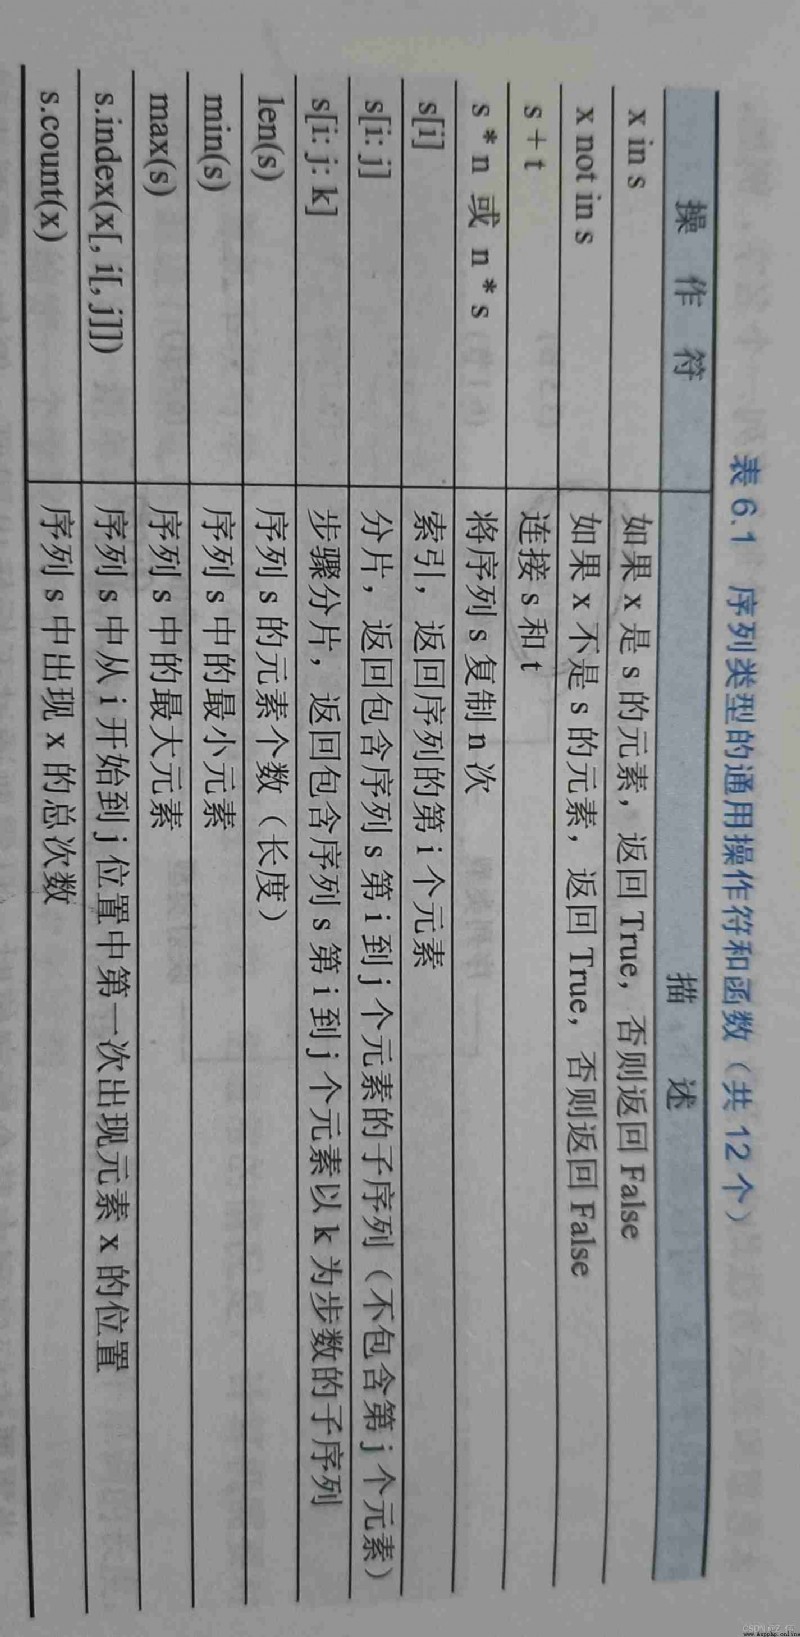 表 6.1 序列类型的通用操作符和函数（共 12 个）
操 作 符 描 述
x in s 如果 x 是 s 的元素，返回 True，否则返回 False
x not in s 如果 x 不是 s 的元素，返回 True，否则返回 False
s + t 连接 s 和 t
s * n 或 n * s 将序列 s 复制 n 次
s[i] 索引，返回序列的第 i 个元素
s[i: j] 分片，返回包含序列 s 第 i 到 j 个元素的子序列（不包含第 j 个元素）
s[i: j: k] 步骤分片，返回包含序列 s 第 i 到 j 个元素以 k 为步数的子序列
len(s) 序列 s 的元素个数（长度）
min(s) 序列 s 中的最小元素
max(s) 序列 s 中的最大元素
s.index(x[, i[, j]]) 序列 s 中从 i 开始到 j 位置中第一次出现元素 x 的位置
s.count(x) 序列 s 中出现 x 的总次数